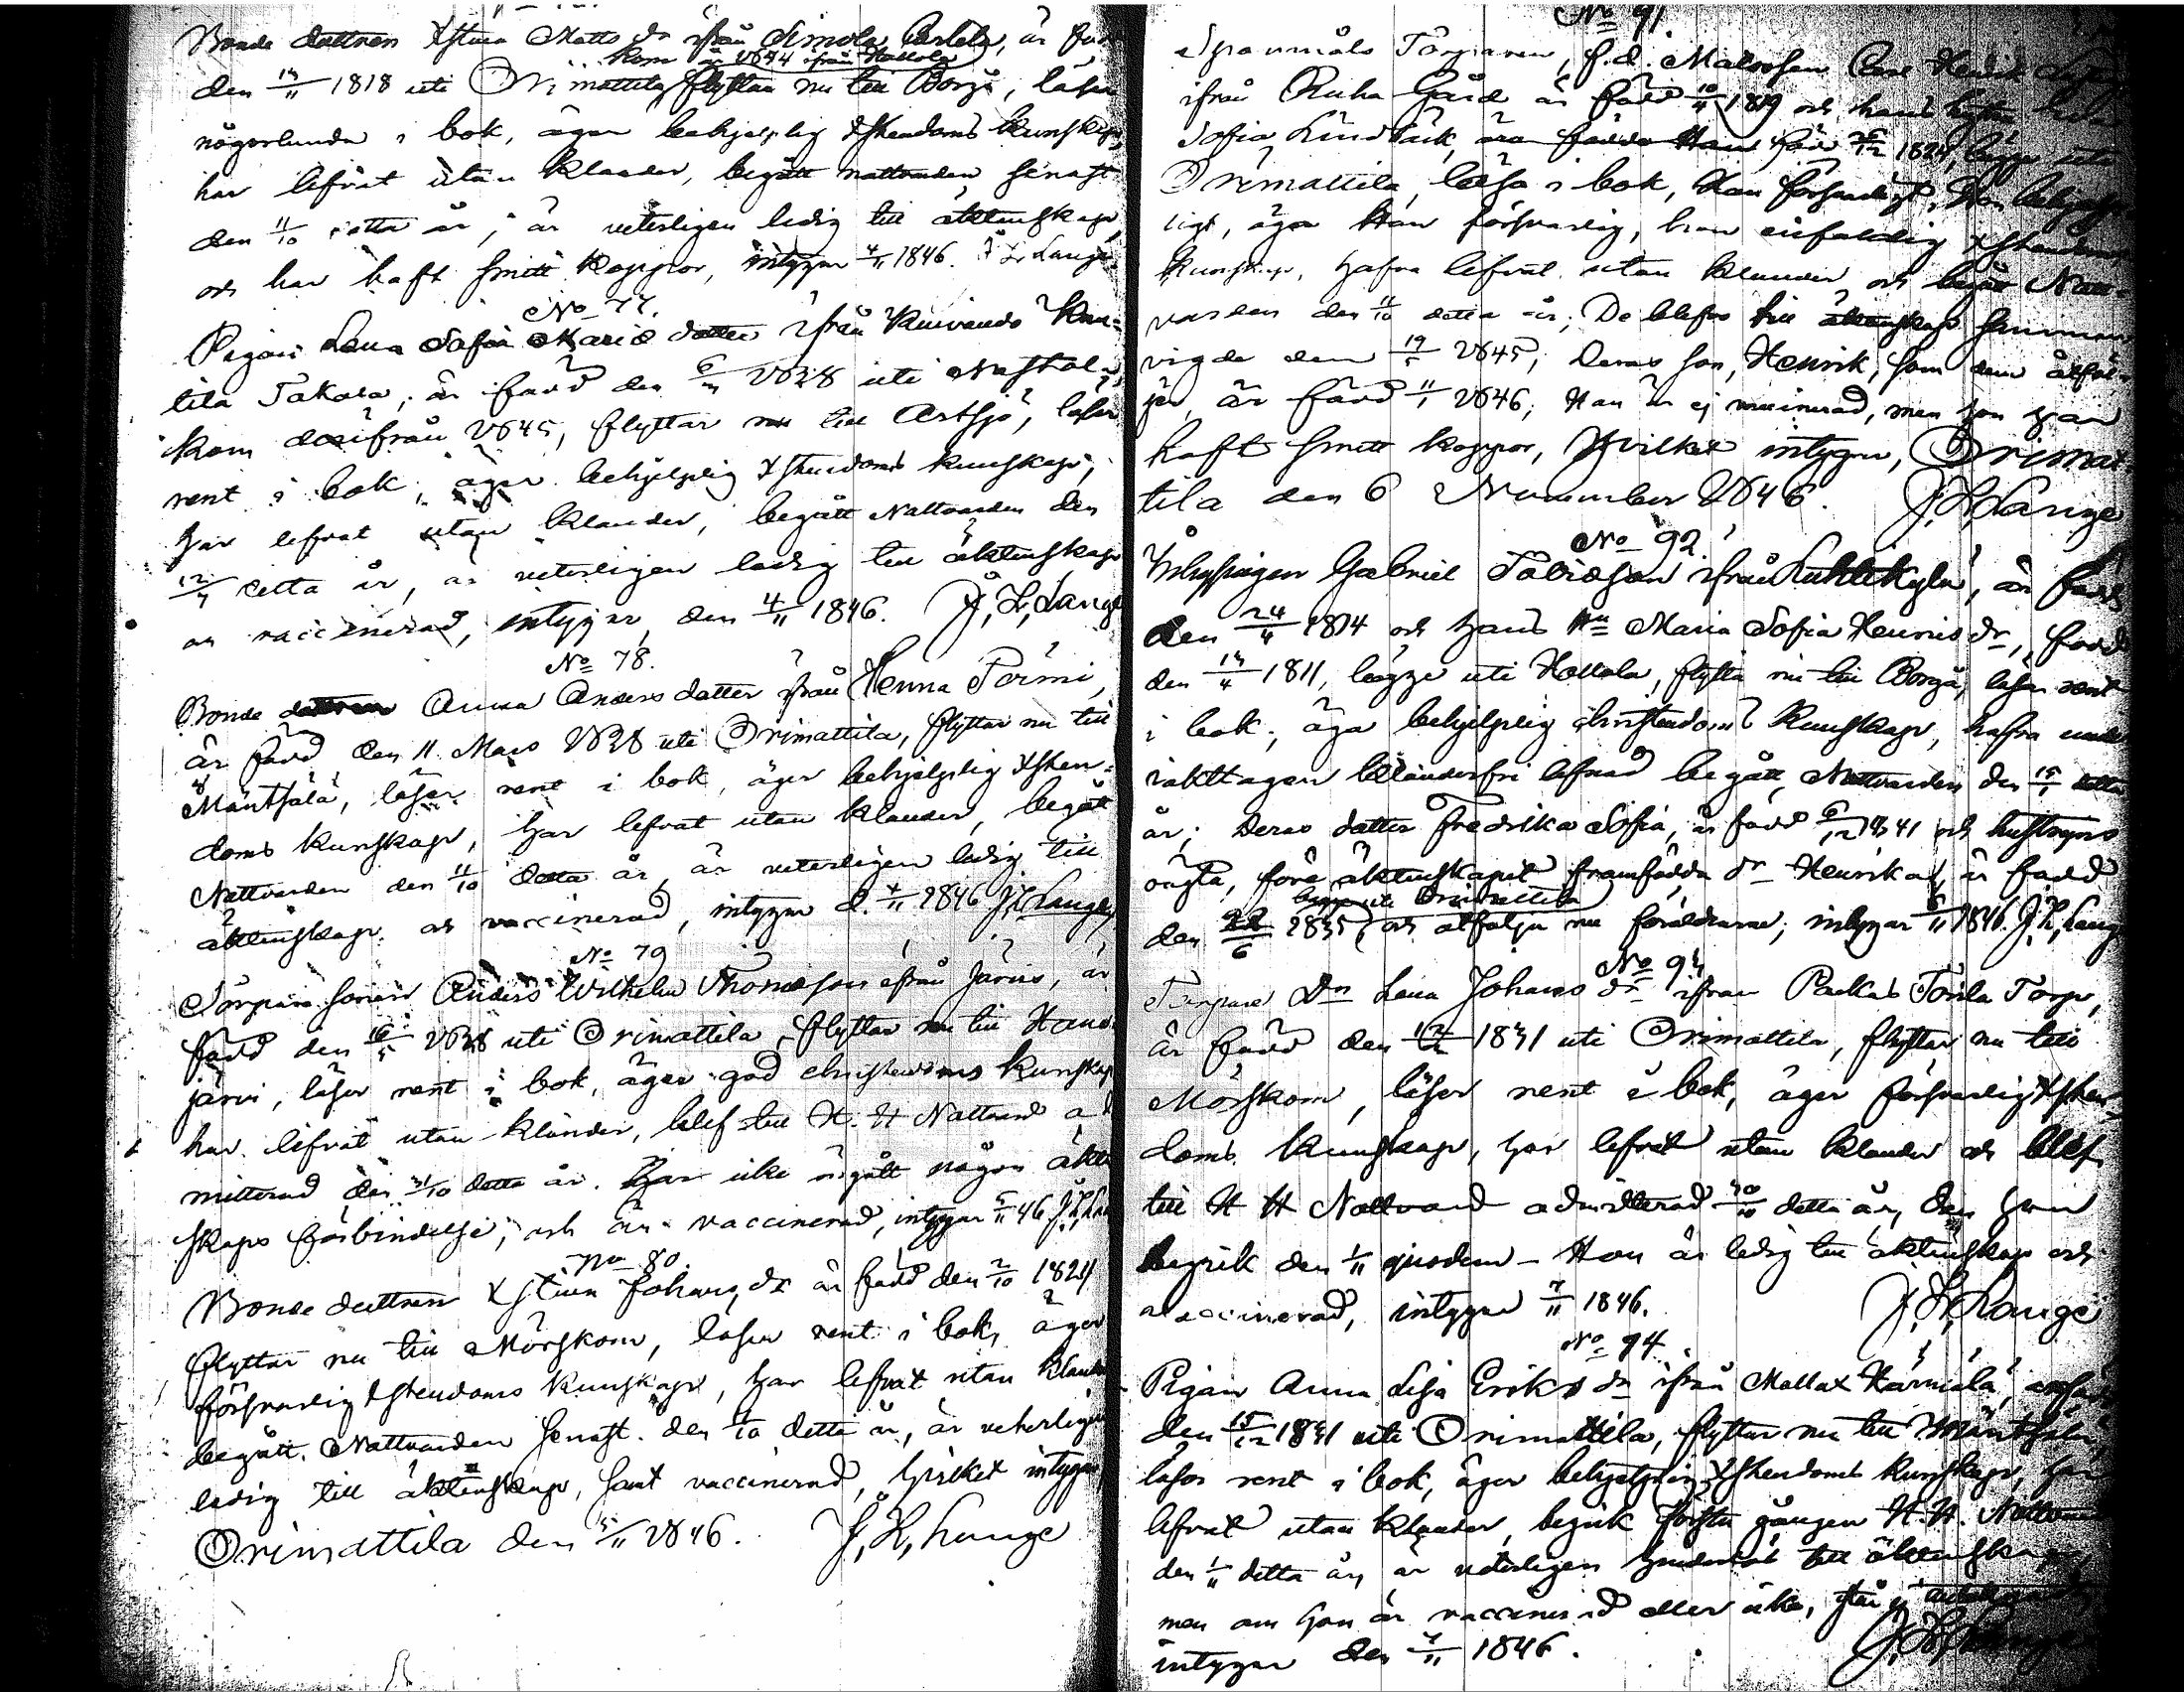 Bonde dottren Xstina Matts dr ifrån Simola Perttala, är född
kom år 1844 ifrån Hollola
den 13/11 1818 uti Orimattila, flyttar nu till Borgå, läser
någorlunda i bok, äger behjelplig Xstendoms kunskap,
har lefvat utan klander, begått nattvarden senast
den 11/10 detta år, är veterligen ledig till äktenskap,
och har haft smitt koppor, intygar 4/11 1846. J. H. Lange
No 77.
Pigan Lena Sofia Maria dotter ifrån Kuivando
tila Takala, är född den 6/3 1828 uti Nastola,
kom därifrån 1845, flyttar nu till Artsjö, läser
rent i bok, äger behjelplig Xstendoms kunskap,
har lefvat utan klander, begått Nattvarden den
12/7 detta år, är veterligen ledig till äktenskap
och vaccinerad, intygar den 4/11 1846. J. H. Lange
No 78.
Bonde dottren Anna Anders dotter ifrån Henna Tormi,
är född den 11 Mars 1828 uti Orimattila, flyttar nu till
Mäntsälä, läser rent i bok, äger behjelplig Xsten-
doms kunskap, har lefvat utan klander, begått
Nattvarden den 11/10 detta år, är veterligen ledig till
äktenskap och vaccinerad, intygar d. 4/11 1846 J. H. Lange
No 79
Torpare sonen Anders Wilhelm Thomasson ifrån Järvis, är
född den 16/5 1828 uti Orimattila, flyttar nu till
järvi, läser rent i bok, äger god christendoms kunskap
har lefvat utan klander, blef till H. H Nattvard ad
mitterad den 31/10 detta år. Har icke ingått någon äkten
skaps förbindelse, och är vaccinerad, intygar 5/11 46 J. H. Lange
No 80.
Bonde dottren Xstina Johans dr är född den 2/10 1824
flyttar nu till Mörskom, läser rent i bok, äger
försvarlig Xstendoms kunskap, har lefvat utan klander
begått Nattvarden senast den /10 detta år, är veterligen
ledig till äktenskap, samt vaccinerad, hvilket intygas,
Orimattila den 5/11 1846. J. H. Lange
No 91
Spannmåls Torparen, f.d. Matrosen Carl Henrik
ifrån Ruha Gård är född 10/4 1819 och hans hustru
Sofia Lindbäck, äro födda Han född 26/12 1824, begge uti
Orimattila, läsa i bok, Han försvarligt, Hon behjelp-
ligt, äga Han försvarlig, hon enfaldig Xstendoms
kunskap, hafva lefvat utan klander och begått Natt-
varden den 11/10 detta år; De blefvo till äktenskap samman
vigde den 19/5 1845; Deras son, Henrik, som dem åtföl-
jer, är född 11/1 1846; Han är ej vaccinerad, men hon har
haft smitt koppor, Hvilket intygar, Orimat-
tila den 6 November 1846. J. H. Lange
No 92.
Inhysingen Gabriel Tobiasson ifrån Luhtikylä, är född
den 24/4 1814 och hans Hu Maria Sofia Henriks dr, född
den 13/4 1811, begge uti Hollola, flytta nu till Borgå, läsa rent
i bok, äga behjelplig christendoms kunskap, hafva under
iakttagen klanderfri lefnad begått Nattvarden den 15/ detta
år; Deras dotter Fredrika Sofia, är född 6/12 1841 och hustruns
oägta, före äktenskapet framfödda dr Henrika, är född
begge uti Orimattila
den 22/6 1835, och åtfölja nu föräldrarne, intygar 6/11 1846. J. H. Lange
No 93
Torpare Dn Lena Johans dr ifrån Packas Torila Torp,
är född den 12/12 1831 uti Orimattila, flyttar nu till
Mörskom, läser rent i bok, äger försvarlig Xsten-
doms kunskap, har lefvat utan klander och blef
till H H Nattvard admitterad 30/10 detta år, den hon
begick den 1/11 ejusdem - Hon är ledig till äktenskap och
vaccinerad, intygar 7/11 1846. J. H. Lange
No 94.
Pigan Anna Lisa Eriks dr ifrån Mallax Härmälä, är född
den 15/12 1831 uti Orimattila, flyttar nu till Mäntsälä,
läser rent i bok, äger behjelplig Xstendoms kunskap, har
lefvat utan klander, begick första gången H. H. Nattvard
den 1/11 detta år, är veterligen hinderlös till äktenskap,
men om hon är vaccinerad eller icke, står ej
intygar den 7/11 1846. J. H. Lange